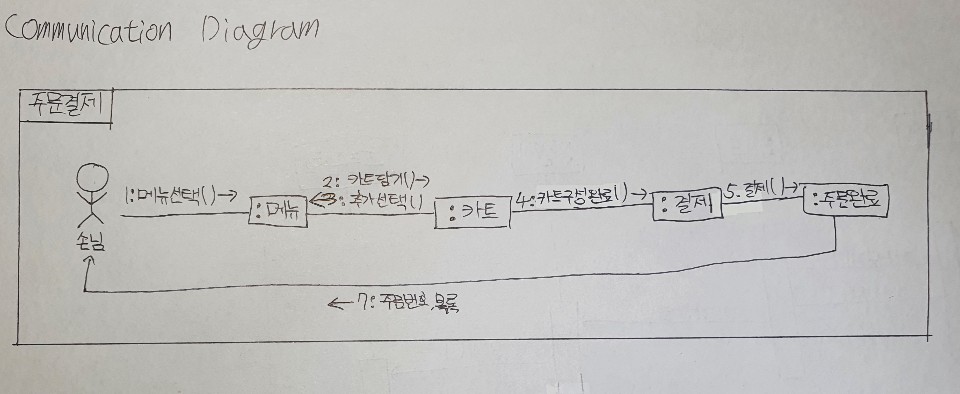 Communication Diagram
주문결제
1:메뉴선택()→
:메뉴
2: 카트담기()→
←3: 추가선택()
:카트
4:카트구성완료()→
:결제
5.결제()→
:주문완료
손님
←7:주문번호,